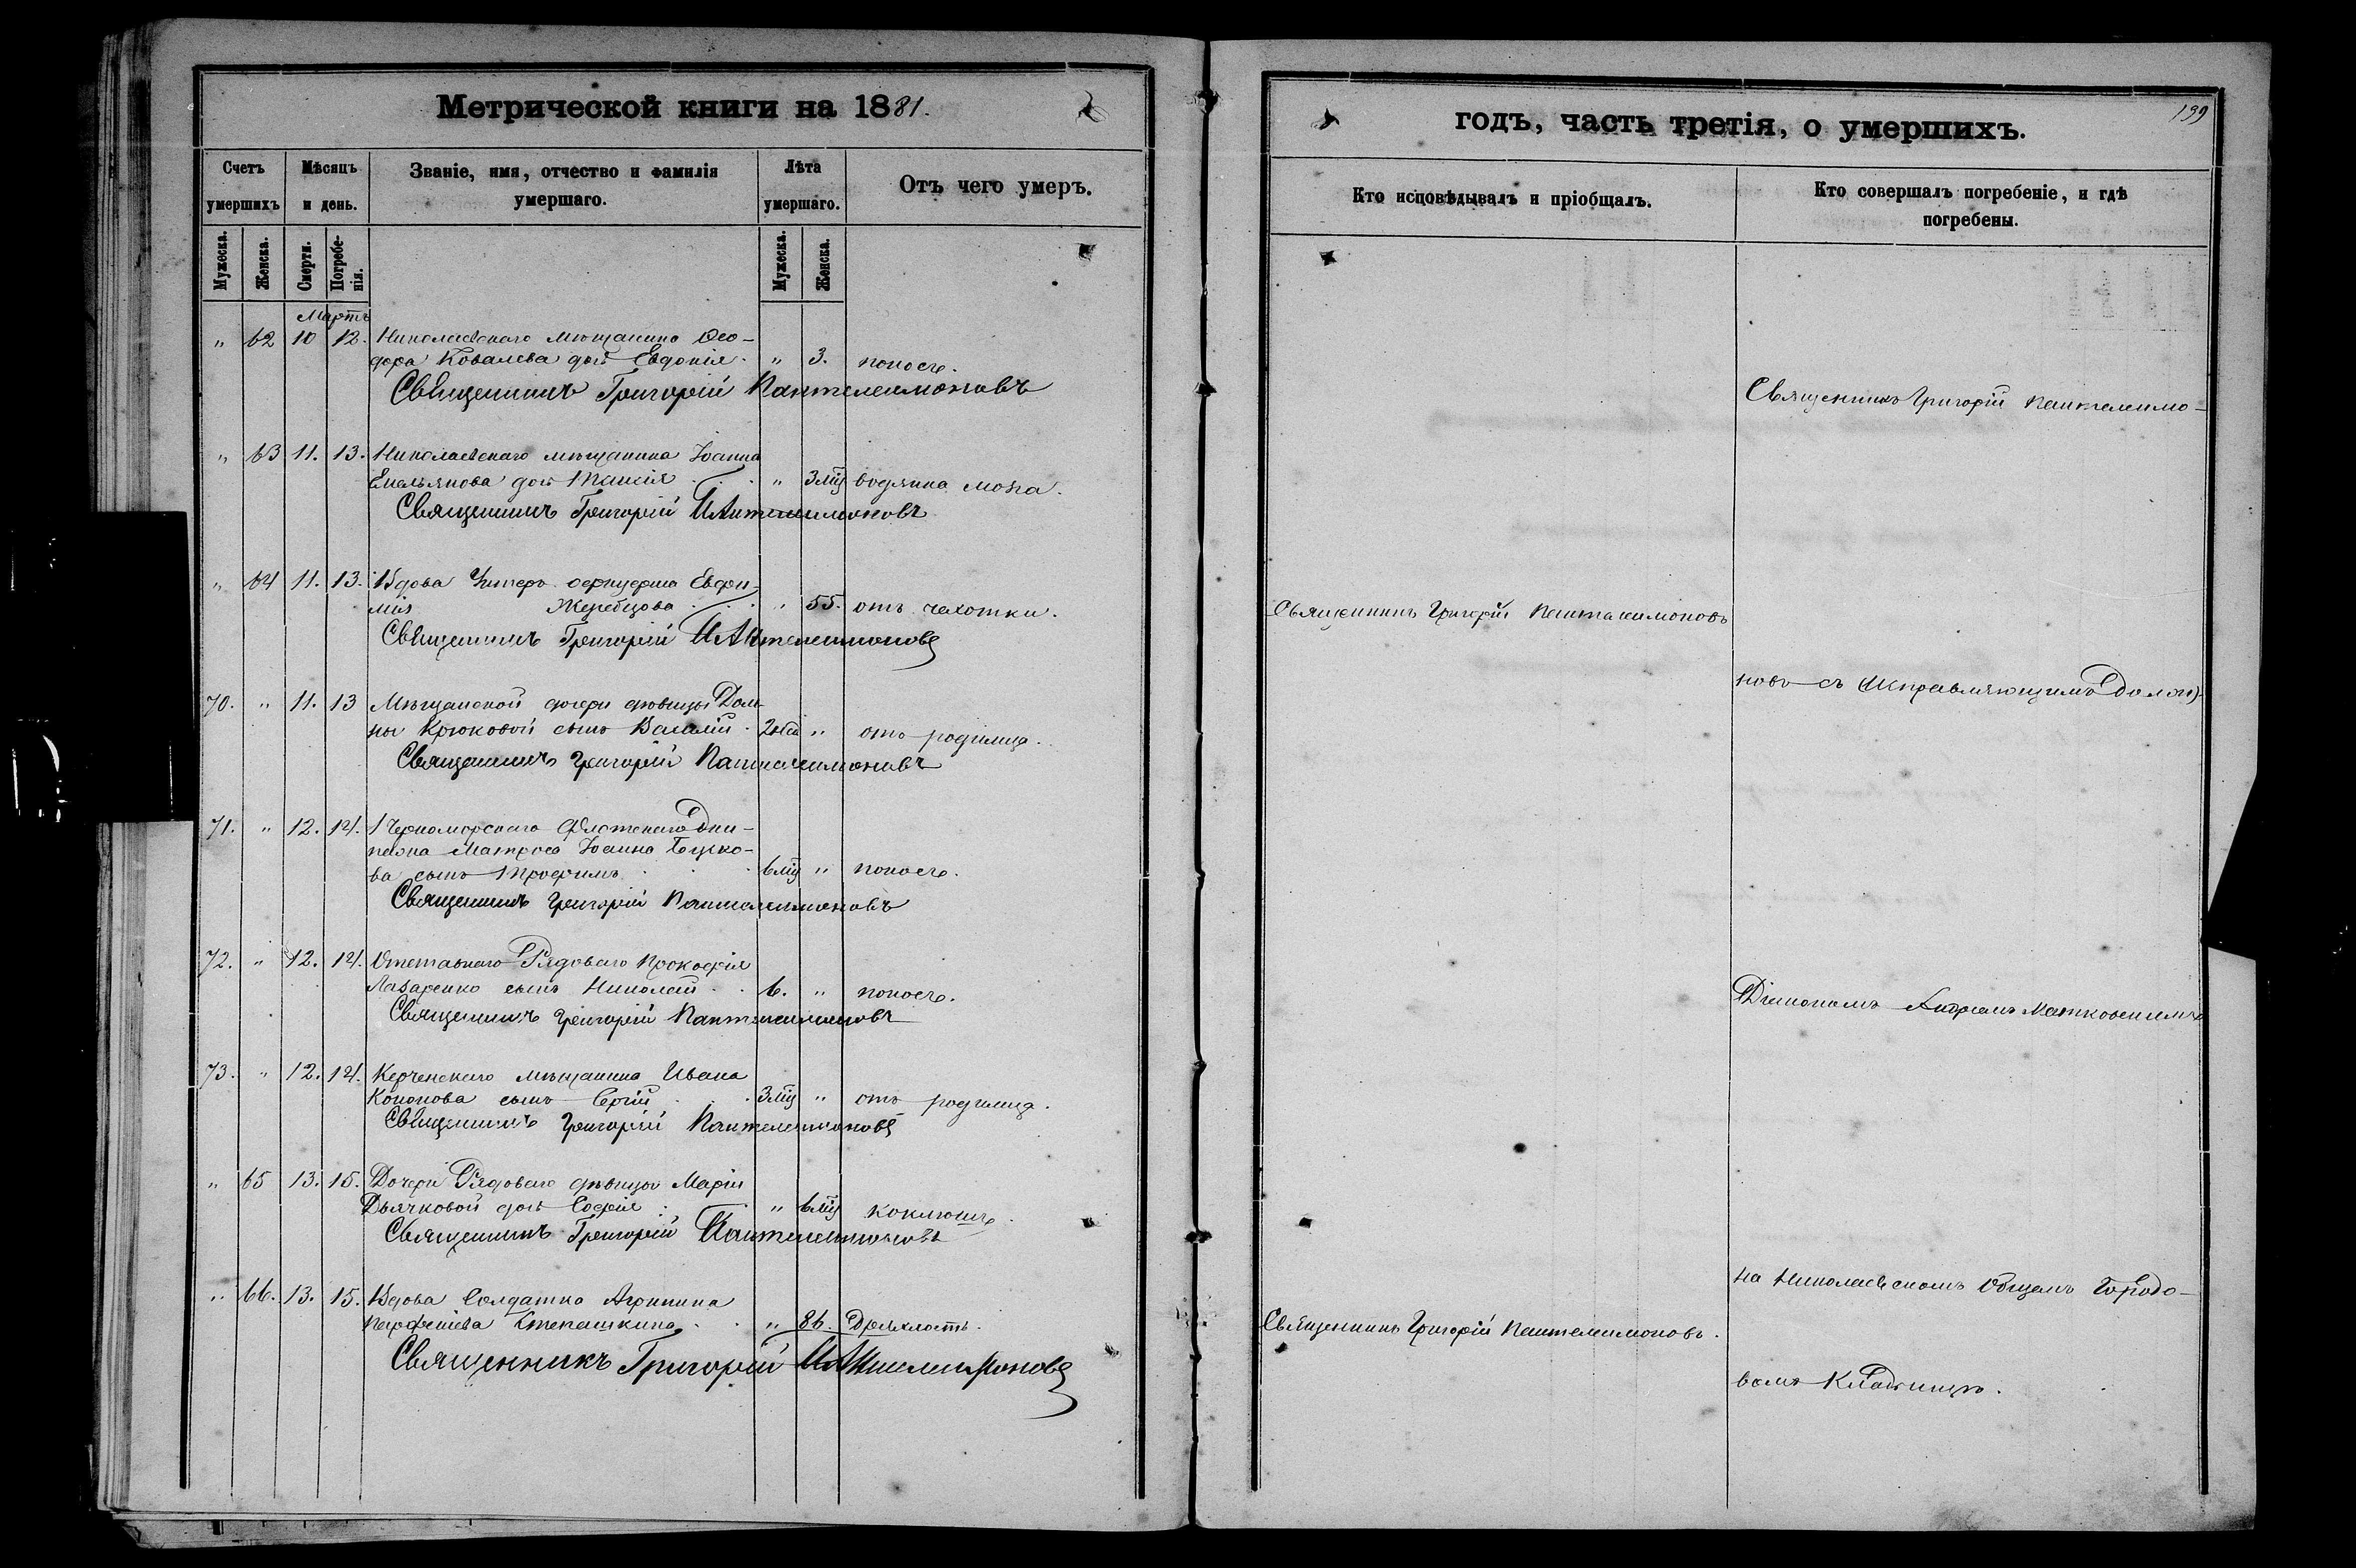 Метрической книги на 1881.
Счетъ умершихъ
Мѣсяцъ и день.
Званіе, имя, отчество и фамилія умершаго.
Лѣта умершаго.
Отъ чего умеръ.
Мужеска.
Женска.
Смерти.
Погребенія.
Мужеска.
Женска.
Мартъ
" 62 10 12. Николаевскаго мѣщанина Ѳео-
дора Ковалева дочь Евдокія. " 3. поносъ.
Священникъ Григорій Пантелеимоновъ
" 63 11. 13. Николаевскаго мѣщанина Іоанна
Емельянова дочь Таисія " 3 мц водянка мозга.
Священникъ Григорій Пантелеимоновъ
" 64 11. 13. Вдова Унтеръ офицерша Евфи-
мія Жеребцова " 55. отъ чахотки.
Священникъ Григорій Пантелеимоновъ
70. " 11. 13 Мѣщанской дочери дѣвицы Дом-
ны Крюковой сынъ Василій. " отъ родимца.
Священникъ Григорій Пантелеимоновъ
71. " 12. 14. 1 Черноморскаго Флотскаго Эки-
пажа Матроса Іоанна
ва сынъ Трофимъ 6 мц " поносъ.
Священникъ Григорій Пантелеимоновъ
72. " 12. 14. Отставнаго Рядоваго Прокофія
Лазаренко сынъ Николай 6. " поносъ.
Священникъ Григорій Пантелеимоновъ
73. " 12. 14. Керченскаго мѣщанина Ивана
Кононова сынъ Сергій 3 мц " отъ родимца.
Священникъ Григорій Пантелеимоновъ
" 65 13. 15. Дочери Рядоваго дѣвицы Маріи
Дьячковой дочь Софія " 6 мц коклюшъ
Священникъ Григорій Пантелеимоновъ
" 66. 13. 15. Вдова Солдатка Агрипина
Парфеніева Степашкина " 86. Дряхлость.
Священникъ Григорій Пантелеимоновъ
годъ, часть третія, о умершихъ.
199
Кто исповѣдывалъ и пріобщалъ.
Кто совершалъ погребеніе, и гдѣ погребены.
Священникъ Григорій Пантелеимо-
Священникъ Григорій Пантелеимоновъ
новъ съ Исправляющимъ Должн)
Діакономъ Андреемъ
на Николаевскомъ Общемъ Городо-
Священникъ Григорій Пантелеимоновъ.
вомъ Кладбищѣ.